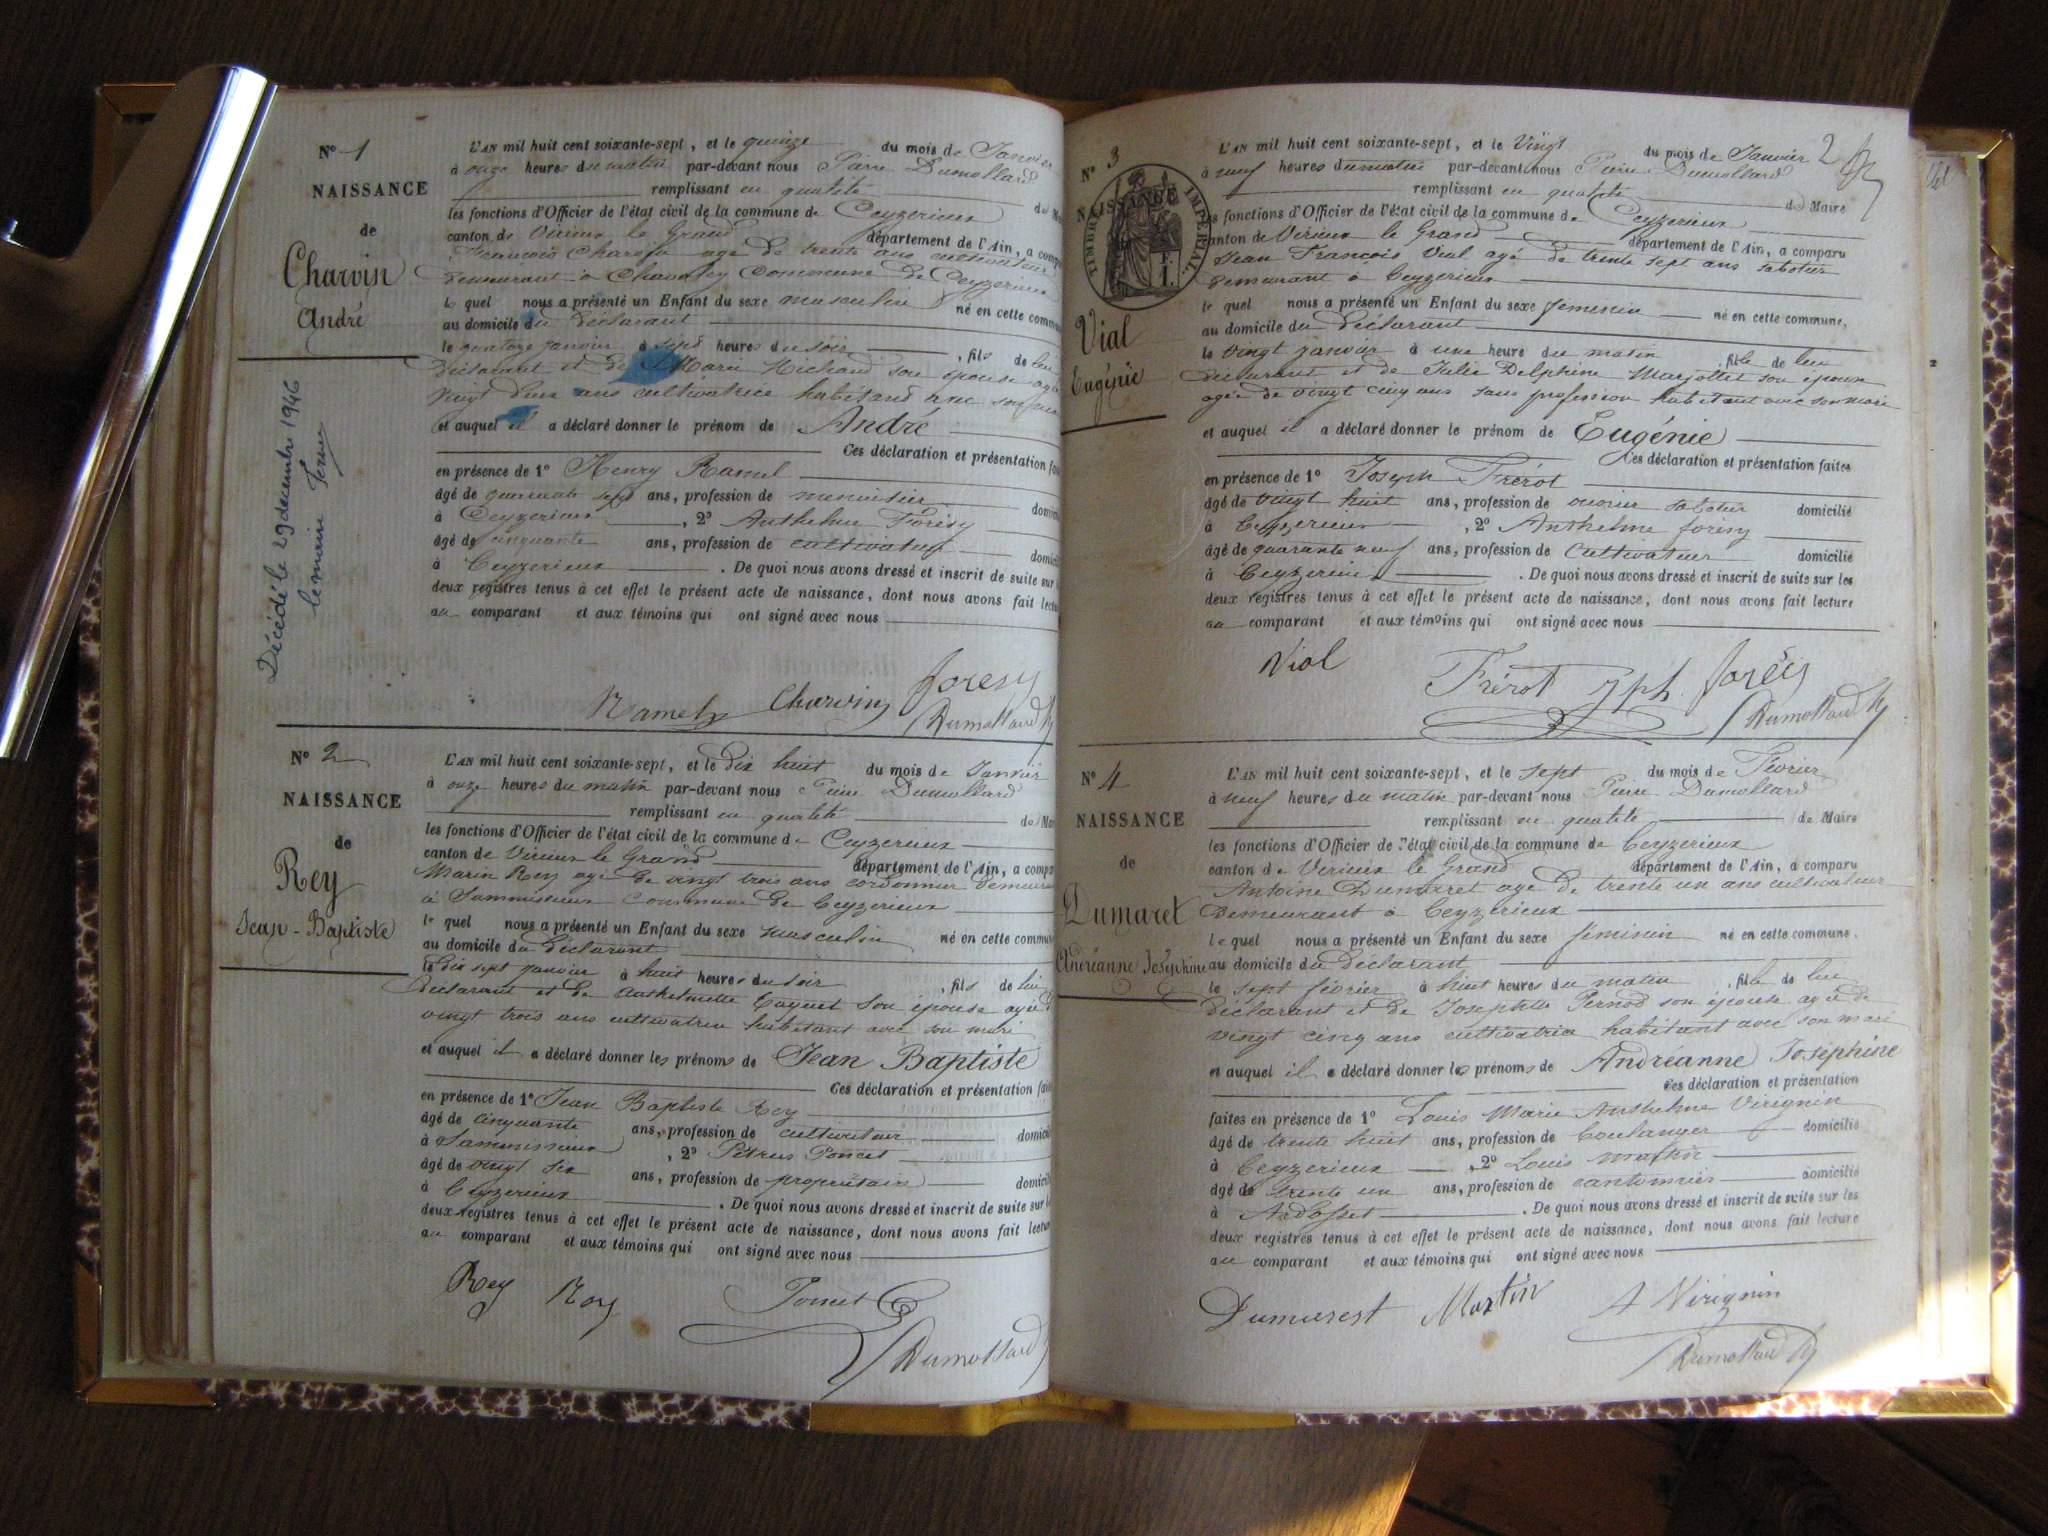 N° 1
NAISSANCE
de
Charvin
André
Décédé le 29 décembre 1946
le maire
L'AN mil huit cent soixante-sept, et le quinze du mois de Janvier
à onze heures du matin par-devant nous Pierre Dumollard
remplissant en qualité de Ma
les fonctions d'Officier de l'état civil de la commune de Ceyzerieux
canton de Virieux le Grand département de l'Ain, a comp
François Charvin agé de trente ans cultivateur
demeurant à Chavoley Commune de Ceyzerieux
le quel nous a présenté un Enfant du sexe masculin né en cette commu
au domicile du Déclarant
le quatorze janvier à sept heures du soir , fils de lui
déclarant et de Marie Richard son épouse agée
vingt deux ans cultivatrice habitant avec son mari
et auquel il a déclaré donner le prénom de André
Ces déclaration et présentation fai
en présence de 1° Henry Ramel
âgé de quarante sept ans, profession de menuisier domici
à Ceyzerieux , 2° Anthelme Forésy
âgé de cinquante ans, profession de cultivateur domici
à Ceyzerieux . De quoi nous avons dressé et inscrit de suite sur
deux registres tenus à cet effet le présent acte de naissance, dont nous avons fait lectu
au comparant et aux témoins qui ont signé avec nous
Ramel Charvin foresy
Dumollard
N° 2
NAISSANCE
de
Rey
Jean-Baptiste
L'AN mil huit cent soixante-sept, et le dix huit du mois de Janvier
à onze heures du matin par-devant nous Pierre Dumollard
remplissant en qualité de Mai
les fonctions d'Officier de l'état civil de la commune de Ceyzerieux
canton de Virieux le Grand département de l'Ain, a compa
Marin Rey agé de vingt trois ans cordonnier demeurant
à Sammissieux commune de Ceyzerieux
le quel nous a présenté un Enfant du sexe masculin né en cette commun
au domicile du Déclarant
le dix sept janvier à huit heures du soir , fils de lui
déclarant et de Anthelmette son épouse agée de
vingt trois ans cultivatrice habitant avec son mari
et auquel il a déclaré donner les prénoms de Jean Baptiste
Ces déclaration et présentation fai
en présence de 1° Jean Baptiste Rey
âgé de cinquante ans, profession de cultivateur domici
à Sammissieux , 2° Pétrus Poncet
âgé de vingt six ans, profession de propriétaire domici
à Ceyzerieux . De quoi nous avons dressé et inscrit de suite sur l
deux registres tenus à cet effet le présent acte de naissance, dont nous avons fait lectur
au comparant et aux témoins qui ont signé avec nous
Rey Rey Poncet
Dumollard
2
N° 3
NAISSANCE
TIMBRE IMPERIAL.
1.
Vial
Eugénie
L'AN mil huit cent soixante-sept, et le Vingt du mois de Janvier
à neuf heures du matin par-devant nous Pierre Dumollard
remplissant en qualité de Maire
les fonctions d'Officier de l'état civil de la commune de Ceyzerieux
canton de Virieux le Grand département de l'Ain, a comparu
Jean François Vial agé de trente sept ans sabotier
demeurant à Ceyzerieux
le quel nous a présenté un Enfant du sexe féminin né en cette commune,
au domicile du Déclarant
le vingt janvier à une heure du matin fille de lui
déclarant et de Julie Delphine Marjollet son épouse
agée de vingt cinq ans sans profession habitant avec son mari
et auquel il a déclaré donner le prénom de Eugénie
Ces déclaration et présentation faites
en présence de 1° Joseph Frérot
âgé de vingt huit ans, profession de ouvrier sabotier domicilié
à Ceyzerieux , 2° Anthelme forésy
âgé de quarante neuf ans, profession de cultivateur domicilié
à Ceyzerieux . De quoi nous avons dressé et inscrit de suite sur les
deux registres tenus à cet effet le présent acte de naissance, dont nous avons fait lecture
au comparant et aux témoins qui ont signé avec nous
Vial Frérot Jph. forésy
Dumollard
N° 4
NAISSANCE
de
Dumaret
Andréanne Joséphine
L'AN mil huit cent soixante-sept, et le sept du mois de Février
à neuf heures du matin par-devant nous Pierre Dumollard
remplissant en qualité de Maire
les fonctions d'Officier de l'état civil de la commune de Ceyzerieux
canton de Virieux le Grand département de l'Ain, a comparu
Antoine Dumarret agé de trente un ans cultivateur
demeurant à Ceyzerieux
le quel nous a présenté un Enfant du sexe féminin né en cette commune.
au domicile du Déclarant
le sept février à huit heures du matin , fille de lui
déclarant et de Josephtte Pernod son épouse agée de
vingt cinq ans cultivatrice habitant avec son mari
et auquel il a déclaré donner les prénoms de Andréanne Joséphine
Ces déclaration et présentation
faites en présence de 1° Louis Marie Anthelme Virignin
âgé de trente huit ans, profession de boulanger domicilié
à Ceyzerieux , 2° Louis Martin
âgé de trente un ans, profession de cantonnier domicilié
à . De quoi nous avons dressé et inscrit de suite sur les
deux registres tenus à cet effet le présent acte de naissance, dont nous avons fait lecture
au comparant et aux témoins qui ont signé avec nous
Dumarest Martin A Virignin
Dumollard